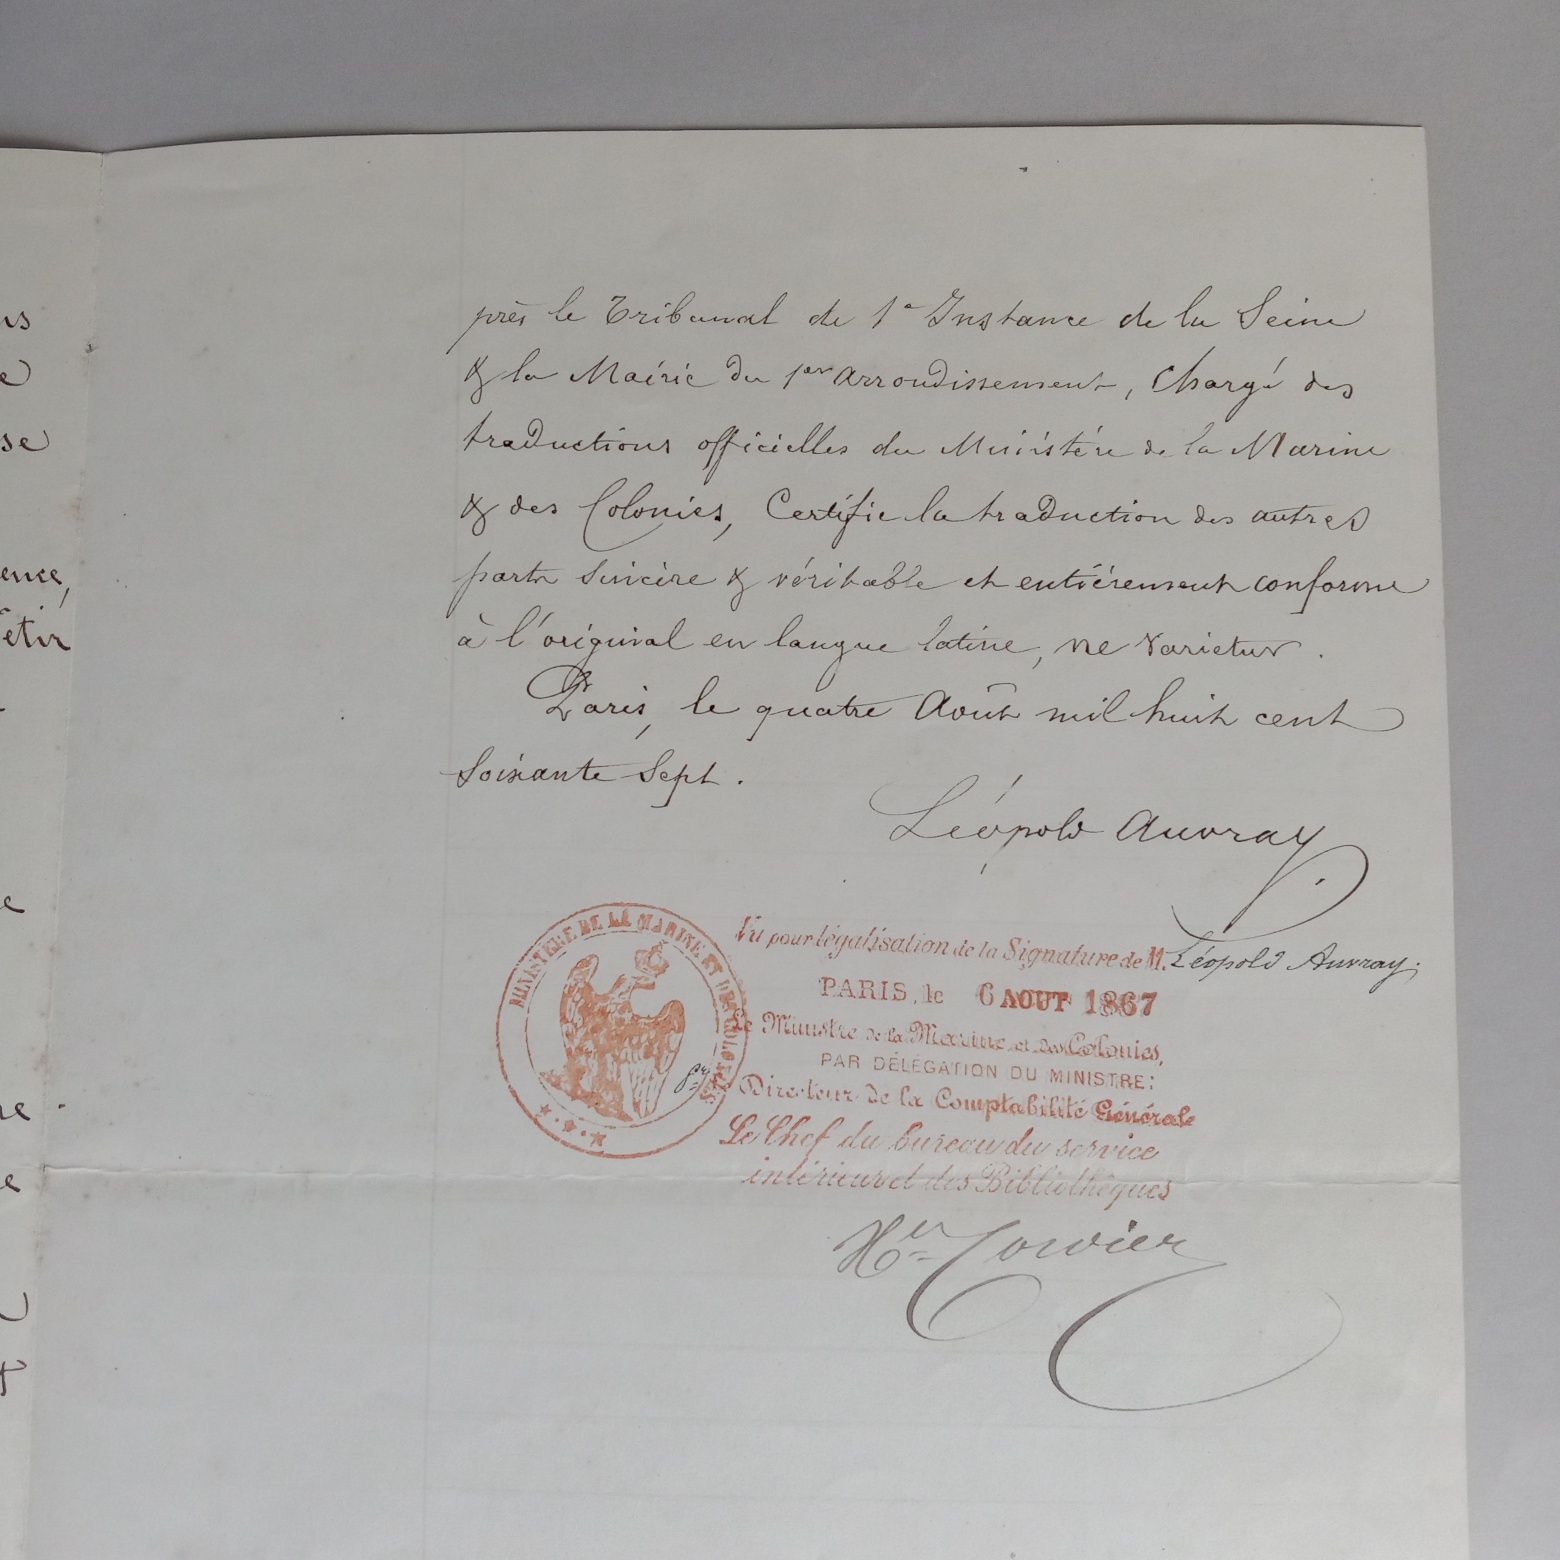 près le Tribunal de 1e Instance de la Seine
& la Mairie du 1er arrondissement, Chargé des
traductions officielles du Ministère de la Marine
& des Colonies, Certifie la traduction des autres
parts sincère & véritable et entièrement conforme
à l'original en langue latine, ne varietur.
Paris, le quatre Août mil huit cent
soixante sept.
Léopold Auvray
MINISTÈRE DE LA MARINE ET DES COLONIES
Vu pour légalisation de la Signature de M. Léopold Auvray.
PARIS, le 6 AOUT 1867
Le Ministre de la Marine et des Colonies,
PAR DÉLÉGATION DU MINISTRE:
Pr Le Directeur de la Comptabilité Générale
Le Chef du bureau du service
intérieur et des Bibliothèques
ns
e
se
ence,
etir
e
re.
e